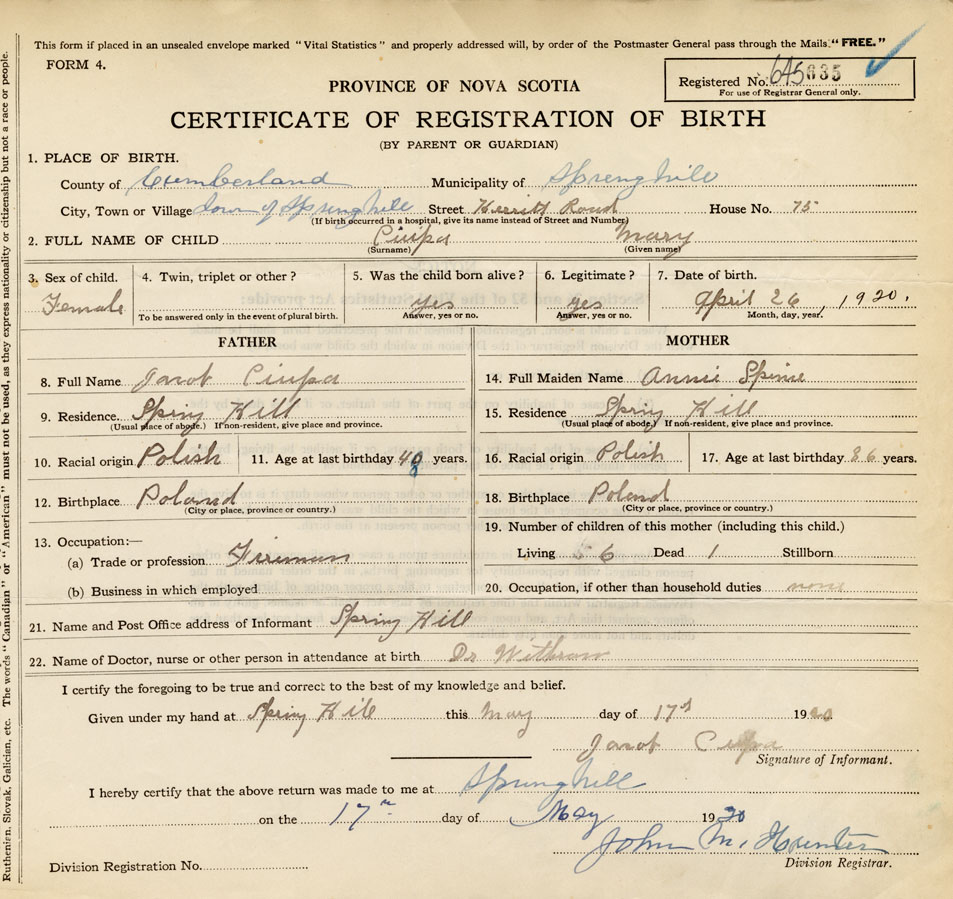 This form if placed in an unsealed envelope marked "Vital Statistics" and properly addressed will, by order of the Postmaster General pass through the Mails "FREE."
FORM 4.
Registered No. 645 635
For use of Registrar General only.
PROVINCE OF NOVA SCOTIA
CERTIFICATE OF REGISTRATION OF BIRTH
(BY PARENT OR GUARDIAN)
1. PLACE OF BIRTH.
County of Cumberland Municipality of Springhill
City, Town or Village Town of Springhill Street Herrits Road House No. 75
(If birth occurred in a hospital, give its name instead of Street and Number)
2. FULL NAME OF CHILD Ciupa Mary
(Surname) (Given name)
3. Sex of child. 4. Twin, triplet or other? 5. Was the child born alive? 6. Legitimate? 7. Date of birth.
Female yes yes April 26 1920.
To be answered only in the event of plural birth. Answer, yes or no. Answer, yes or no. Month, day, year.
FATHER MOTHER
8. Full Name Jacob Ciupa 14. Full Maiden Name Annie
9. Residence. Spring Hill 15. Residence Spring Hill
(Usual place of abode.) If non-resident, give place and province. (Usual place of abode.) If non-resident, give place and province.
10. Racial origin Polish 11. Age at last birthday 40 years. 16. Racial origin Polish 17. Age at last birthday 36 years.
12. Birthplace Poland 18. Birthplace Poland
(City or place, province or country.) (City or place, province or country.)
13. Occupation:— 19. Number of children of this mother (including this child.)
(a) Trade or profession Fireman Living 6 Dead 1 Stillborn
(b) Business in which employed 20. Occupation, if other than household duties none
21. Name and Post Office address of Informant Spring Hill
22. Name of Doctor, nurse or other person in attendance at birth Dr Withrow
I certify the foregoing to be true and correct to the best of my knowledge and belief.
Given under my hand at Spring Hill this May day of 17 1920
Jacob Ciupa
Signature of Informant.
I hereby certify that the above return was made to me at Springhill
on the 17th day of May 1920
John M. Hunter
Division Registrar.
Division Registration No.
Ruthenian, Slovak, Galician, etc. The words "Canadian" or "American" must not be used, as they express nationality or citizenship but not a race or people.